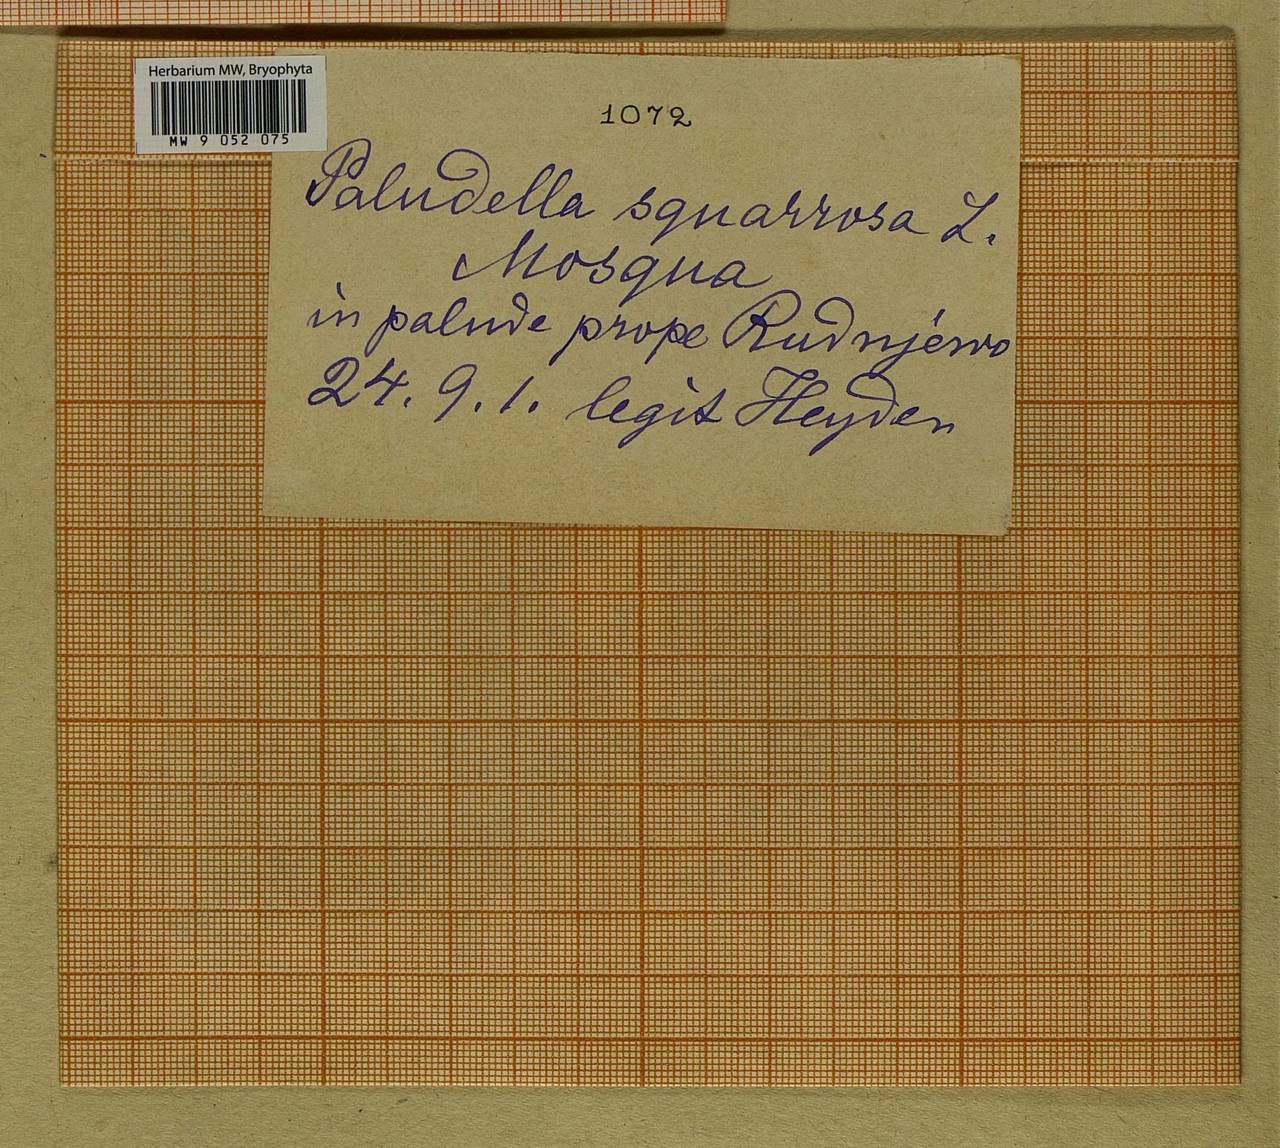 Herbarium MW, Bryophyta
MW 9 052 075
1072
Paludella squarrosa L.
Mosqua
in palude prope Rudnjéwo
24. 9. 1. legit Heyden